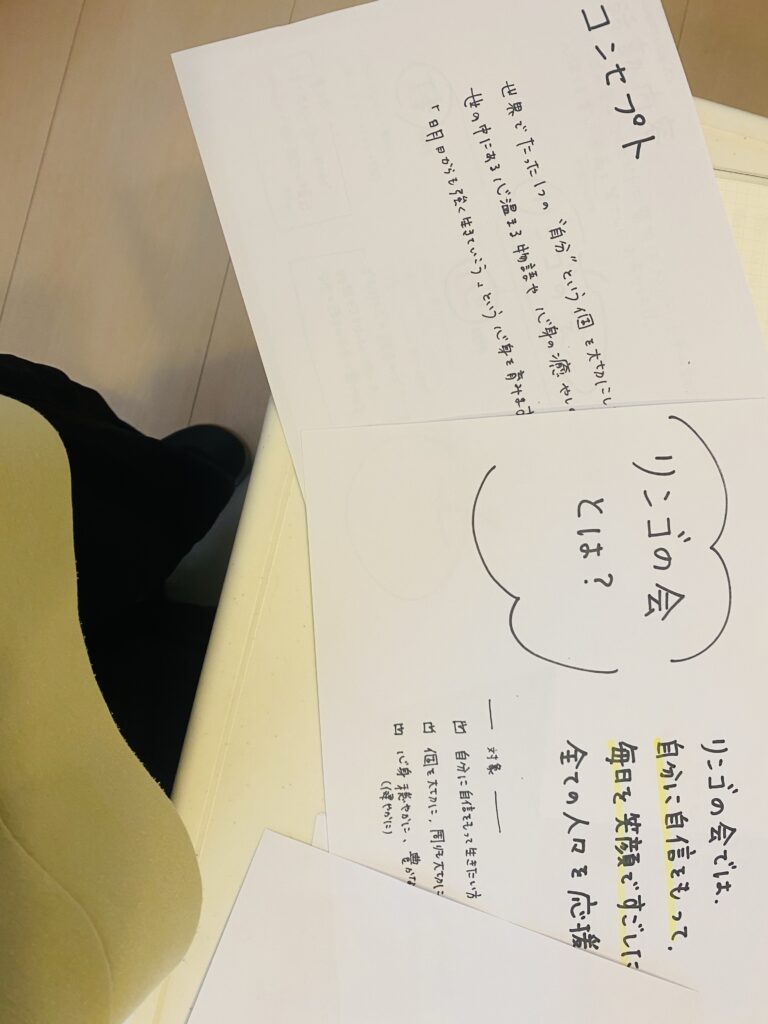 コンセプト
世界でたった1つの"自分"という個を大切にし
世の中にある心温まる物語や心身の癒やし
「明日からも強く生きていこう」という心身を育みます
リンゴの会
とは?
リンゴの会では、
自分に自信をもって、
毎日を笑顔ですごした
全ての人々を応援
対象
自分に自信をもって生きたい方
個を大切に、周りを大切に
心身穏やかに、豊かな
(健やかに)